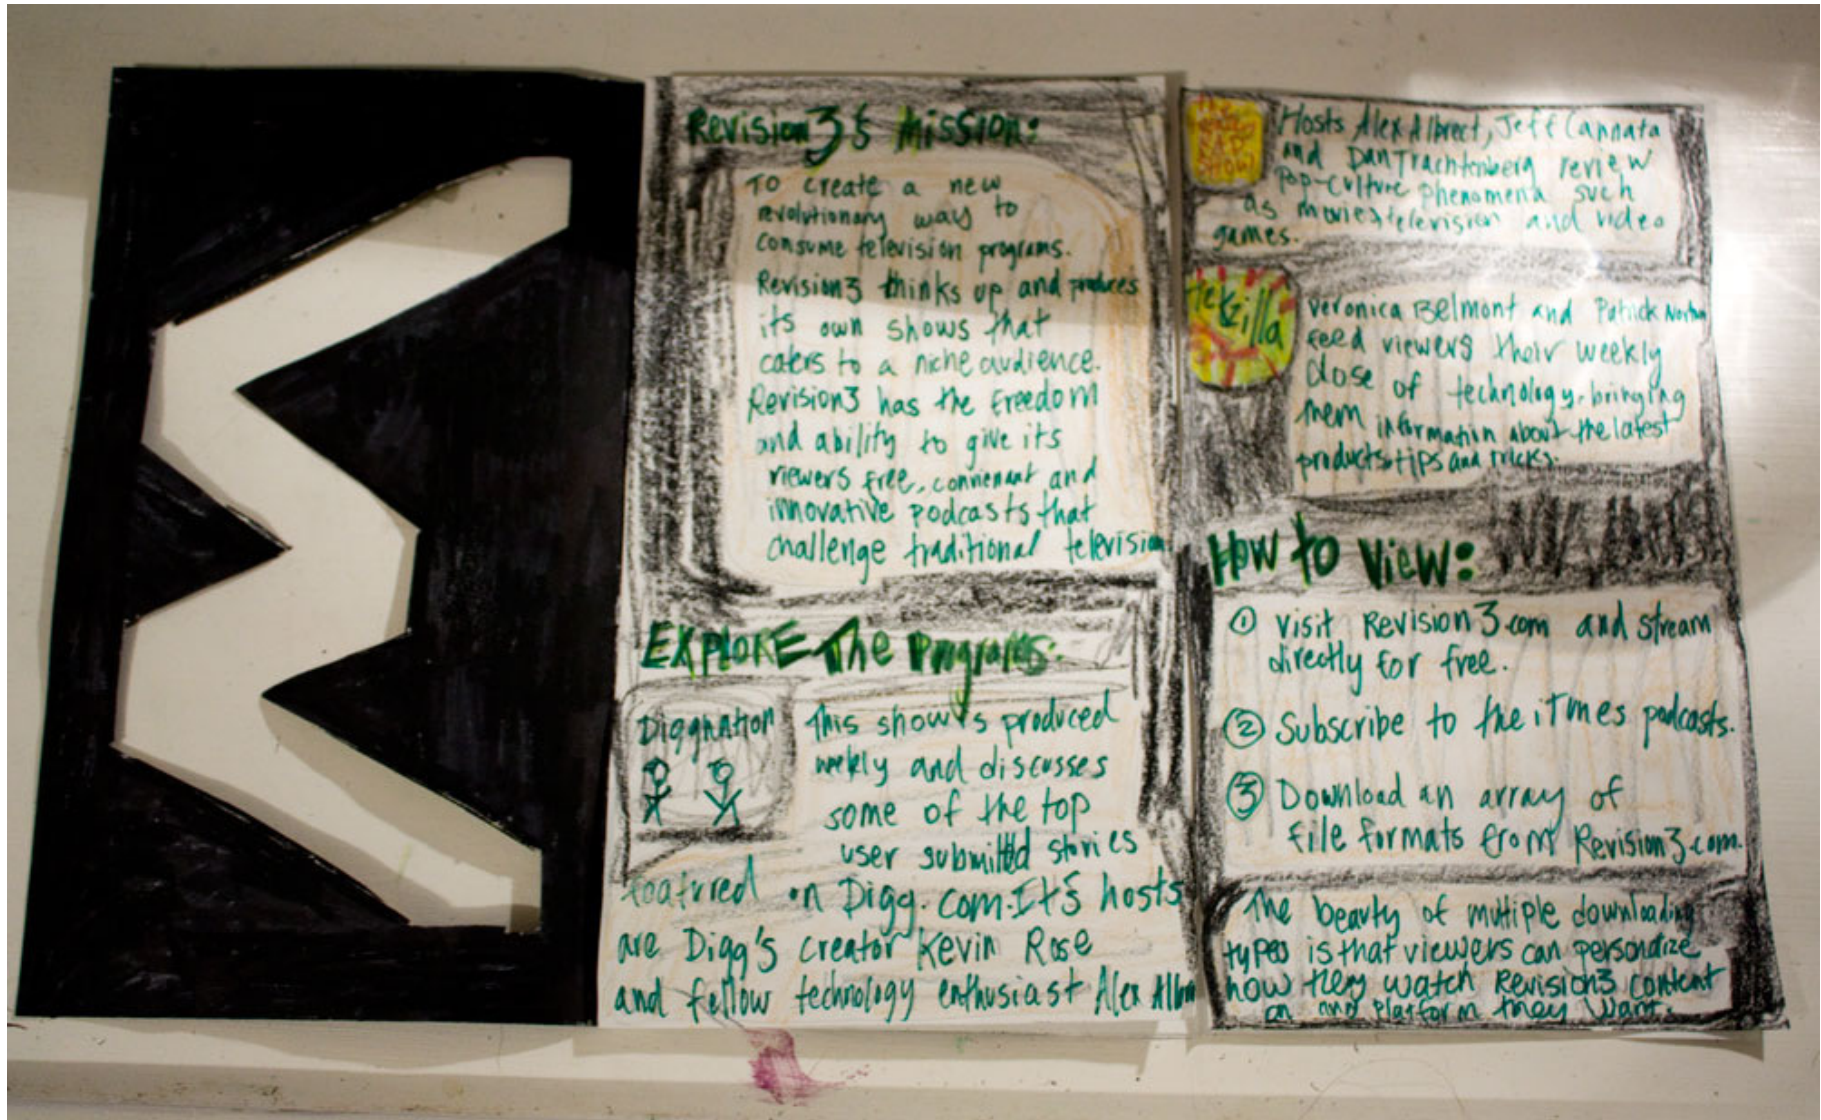 Revision3's Mission:
To create a new
revolutionary way to
consume television programs.
Revision3 thinks up and produces
its own shows that
caters to a niche audience.
Revision3 has the Freedom
and ability to give its
viewers free, connienant and
innovative podcasts that
challenge traditional television
EXPLORE The Programs:
Diggnation
This show is produced
wekly and discusses
some of the top
user submitted stories
featured on Digg.com. It's hosts
are Digg's creator Kevin Rose
and fellow technology enthusiast Alex
the
SHOW
Hosts Alex Albrect, Jeff Cannata
and Dan Trachtenberg review
Pop-culture phenomena such
as movies, television and video
games.
Tekzilla
Veronica Belmont and Patrick Norton
feed viewers their weekly
dose of technology, bringing
them information about the latest
products, tips and tricks.
How to View:
① Visit Revision3.com and stream
directly for free.
② Subscribe to the iTunes podcasts.
③ Download an array of
file formats from Revision3.com.
The beauty of multiple downloading
types is that viewers can personalize
how they watch Revision3 content
on any platform they want.